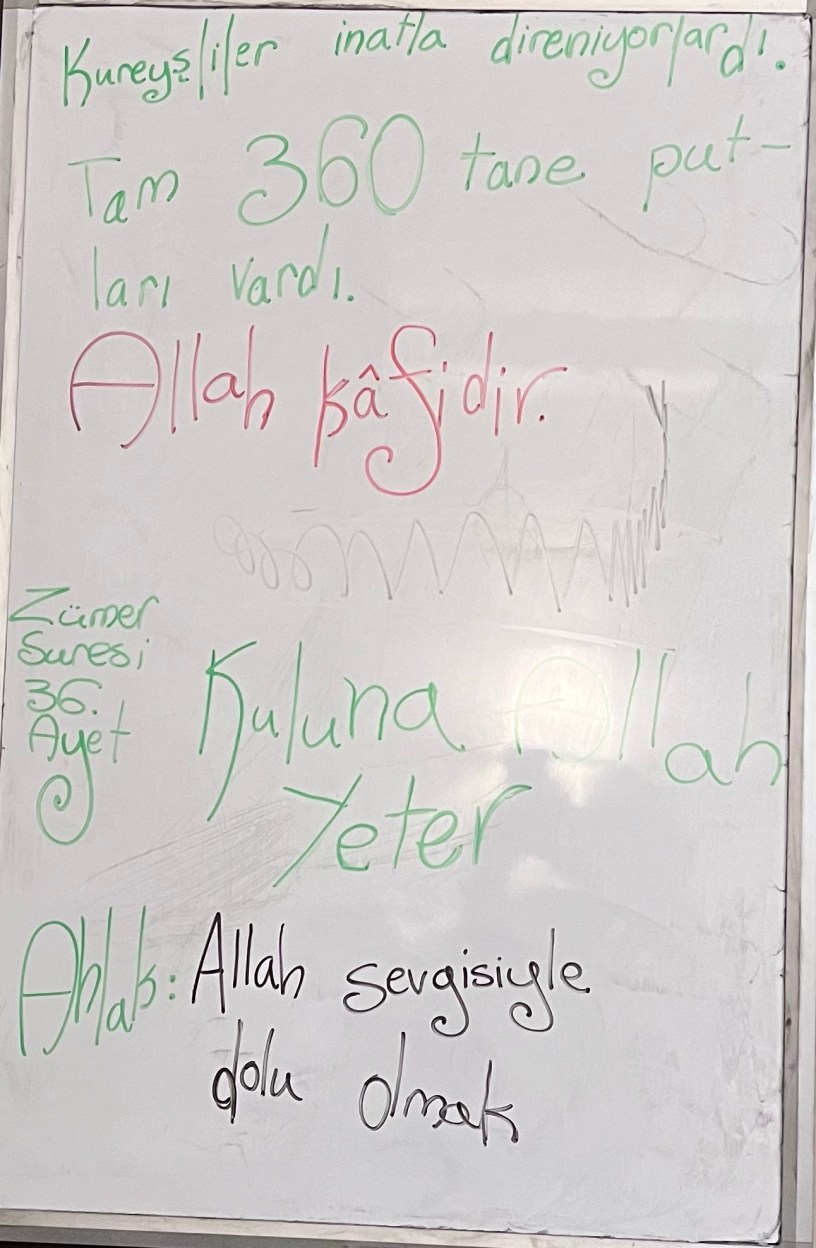 Kureyşliler inatla direniyorlardı.
Tam 360 tane put-
ları vardı.
Allah kâfidir.
Zümer
Suresi
36.
Ayet
Kuluna Allah
Yeter
Ahlak: Allah sevgisiyle
dolu olmak